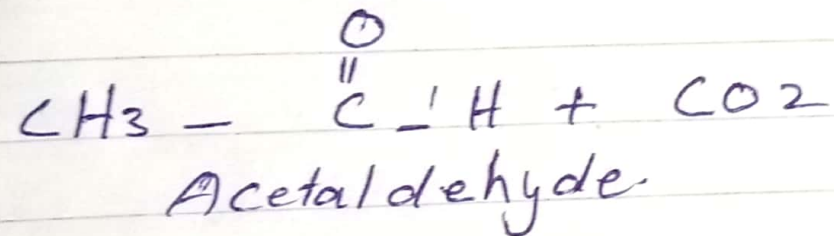 O
||
CH3 - C - H + CO2
Acetaldehyde.